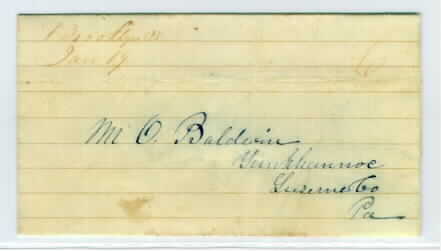 Brooklyn
Jan 19
6
M O. Baldwin
Tunkhannoc
Luzerne Co
Pa